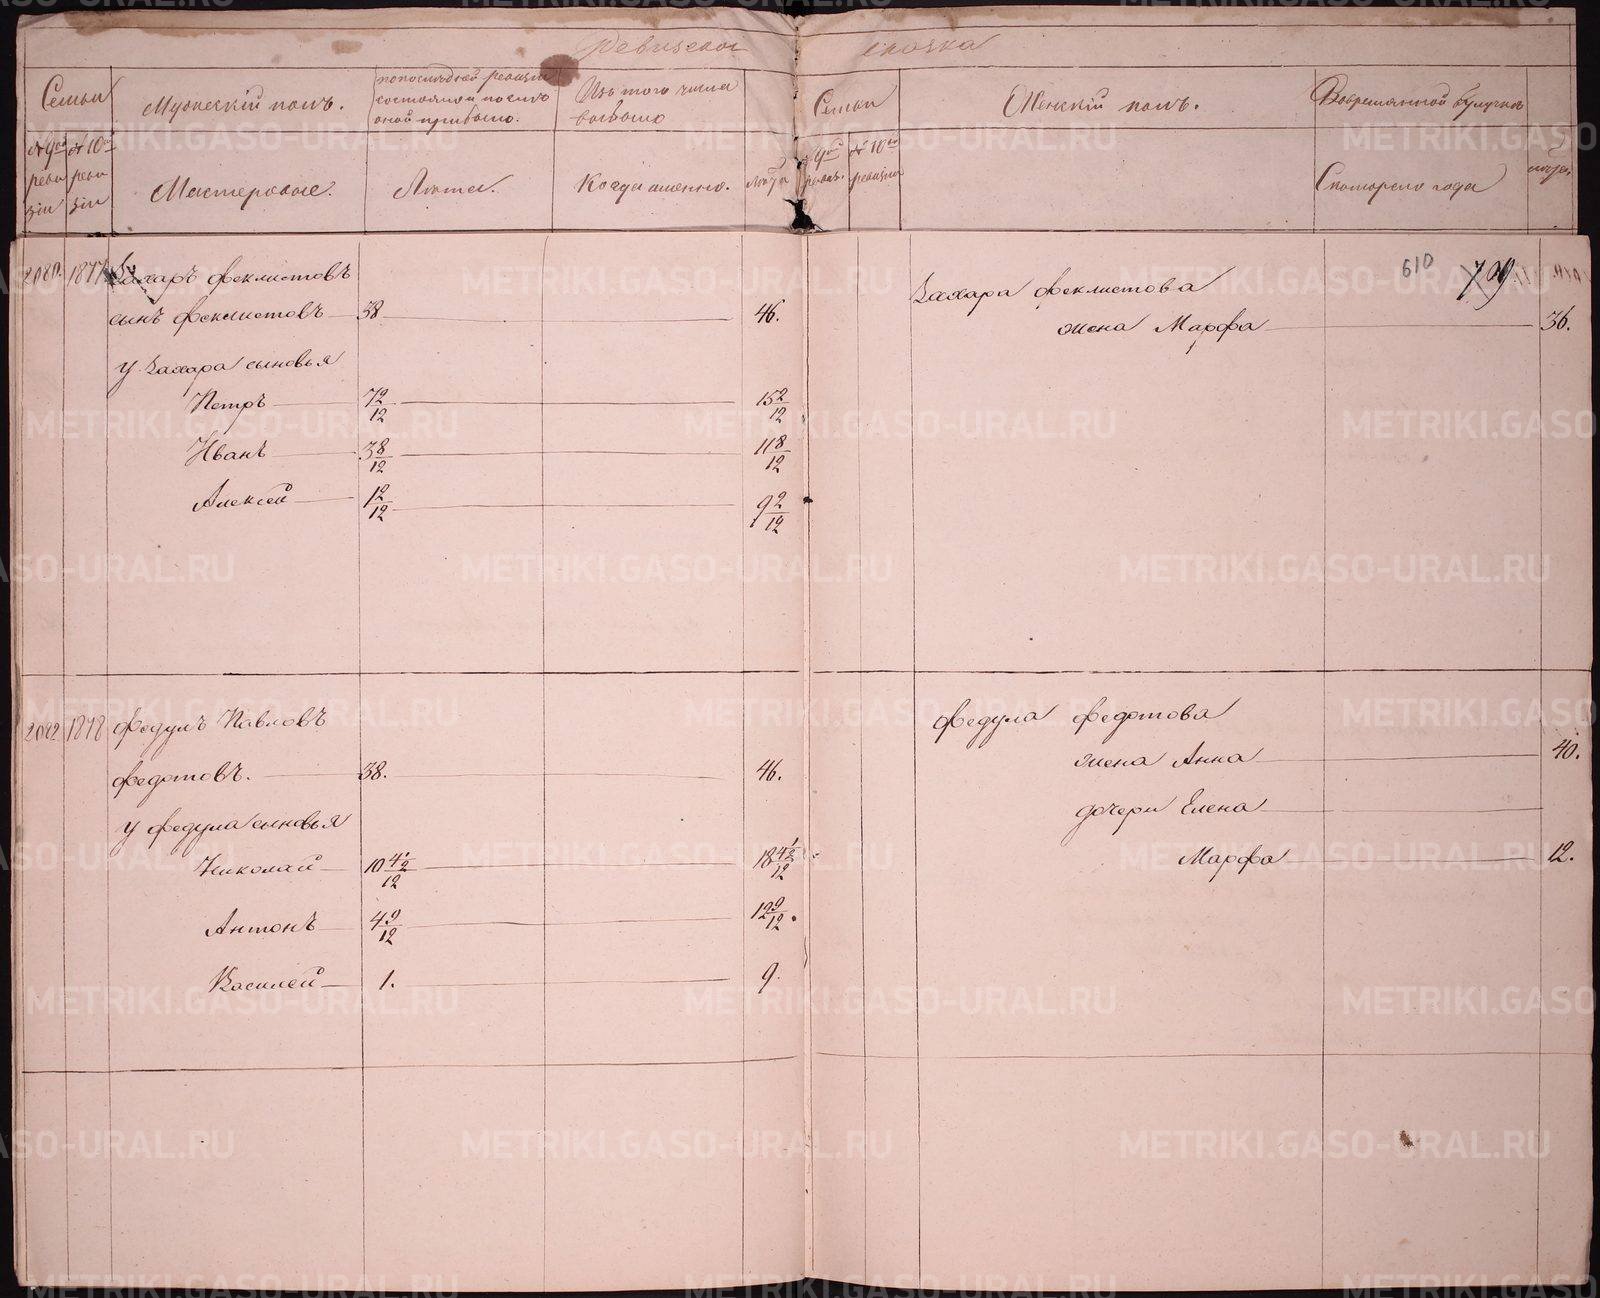 Ревизская сказка
Семьи
Мужескій полъ.
по последней ревизіи состояло и после оной прибыло.
Изъ того числа выбыло
Семьи
Женскій полъ.
Вовременной отлучкѣ
№ 9ой ревизіи
№ 10ой ревизіи
Мастеровые.
Лѣта.
Когда именно.
Лѣта
№ 10ой ревизіи
Скотораго года
лѣта
2080. 1877 Захаръ Феклистовъ
сынъ Феклистовъ 38 46.
У Захара сыновья
Петръ 7 2/12 15 2/12
Иванъ 3 8/12 11 8/12
Алексей 1 2/12 9 2/12
2082 1878 Федулъ Павловъ
Федотовъ. 38. 46.
У Федула сыновья
Николай 10 4 1/2/12 18 4 1/2/12
Антонъ 4 9/12 12 9/12.
Василей 1. 9.
610 709
Захара Феклистова
жена Марфа 36.
Федула Федотова
жена Анна 40.
дочери Елена
Марфа 12.
METRIKI.GASO-URAL.RU